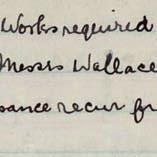 Works required
Messrs Wallace
sance recur fr